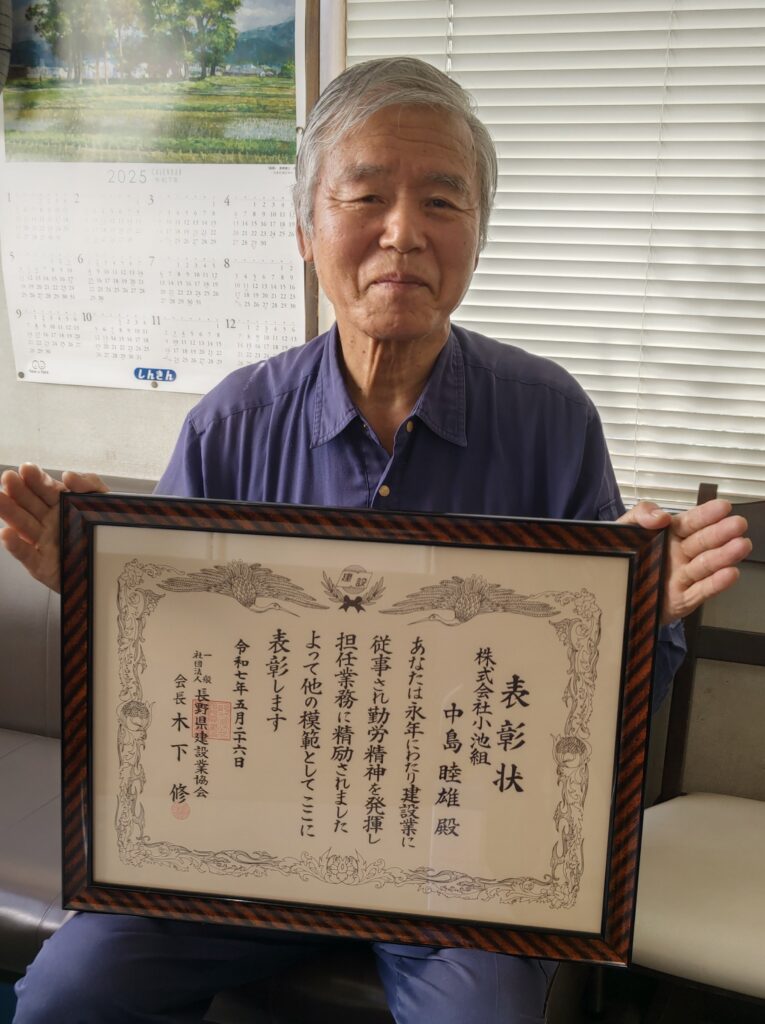 2025 CALENDAR
1
2
3
4
5
6
7
8
9
10
11
12
しんきん
建設
表彰状
株式会社小池組
中島睦雄殿
あなたは永年にわたり建設業に
従事され勤労精神を発揮し
担任業務に精励されました
よって他の模範としてここに
表彰します
令和七年五月二十六日
一般社団法人 長野県建設業協会
会長 木下 修